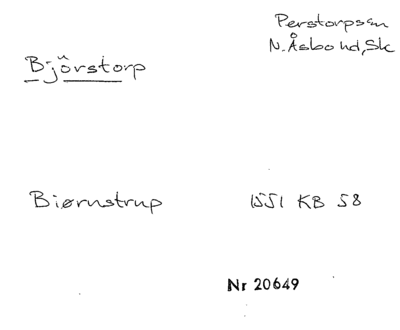 Perstorps sn
N. Åsbo hd, Sk
Björstorp
Biørnstrup 1551 KB 58
Nr 20649